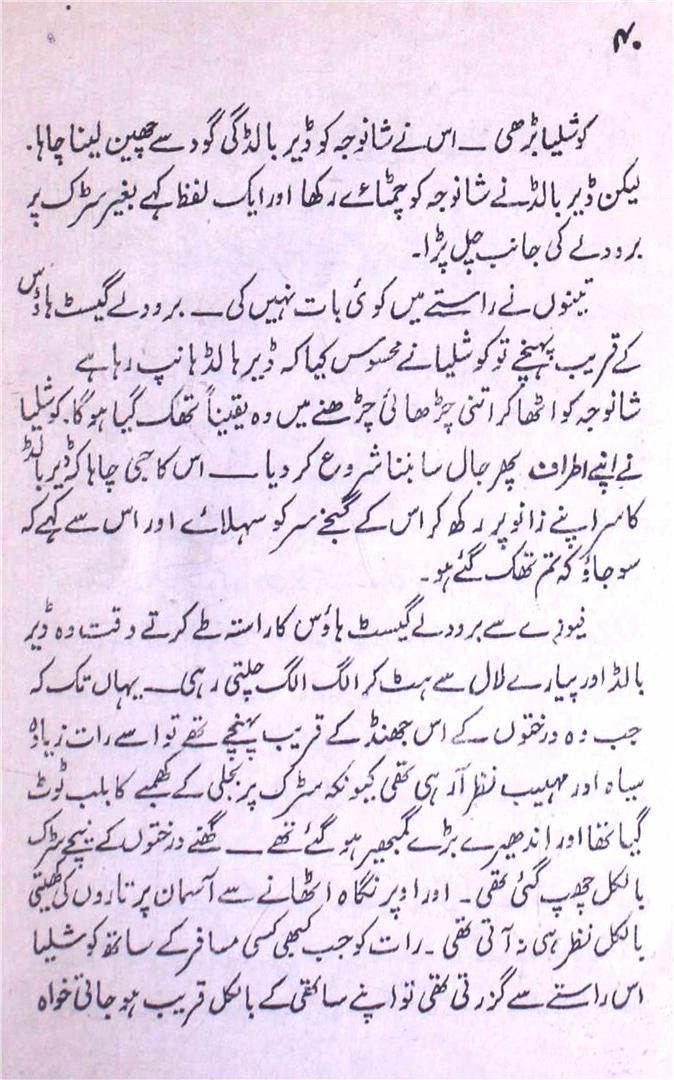 ۴۰
کوشلیا بڑھی ــ اس نے شانوجہ کو ڈیر بالڈ گی گود سے چھین لینا چاہا۔
لیکن ڈیر بالڈ نے شانوجہ کو چمٹائے رکھا اور ایک لفظ کہے بغیر سڑک پر
برودلے کی جانب چل پڑا۔
تینوں نے راستے میں کوئی بات نہیں کی ــ برودلے گیسٹ ہاؤس
کے قریب پہنچے تو کوشلیا نے محسوس کیا کہ ڈیر بالڈ ہانپ رہا ہے
شانوجہ کو اٹھا کر اتنی چڑھائی چڑھنے میں وہ یقیناً تھک گیا ہوگا۔ کوشلیا
نے اپنے اطراف پھر جال سا بننا شروع کر دیا ــ اس کا جی چاہا کہ ڈیر بالڈ
کا سر اپنے زانو پر رکھ کر اس کے گنجے سر کو سہلائے اور اس سے کہے کہ
سو جاؤ کہ تم تھک گئے ہو۔
نیوزے سے برودلے گیسٹ ہاؤس کا راستہ طے کرتے وقت وہ ڈیر
بالڈ اور پیارے لال سے ہٹ کر الگ الگ چلتی رہی ــ یہاں تک کہ
جب وہ درختوں کے اس جھنڈ کے قریب پہنچے تھے تو اسے رات زیادہ
سیاہ اور مہیب نظر آ رہی تھی کیونکہ سڑک پر بجلی کے کھمبے کا بلب ٹوٹ
گیا تھا اور اندھیرے بڑے گمبھیر ہو گئے تھے ــ گھنے درختوں کے نیچے سڑک
بالکل چھپ گئی تھی۔ اور اوپر نگاہ اٹھانے سے آسمان پر تاروں کی کھیتی
بالکل نظر ہی نہ آتی تھی۔ رات کو جب کبھی کسی مسافر کے ساتھ کوشلیا
اس راستے سے گزرتی تھی تو اپنے ساتھی کے بالکل قریب ہو جاتی خواہ